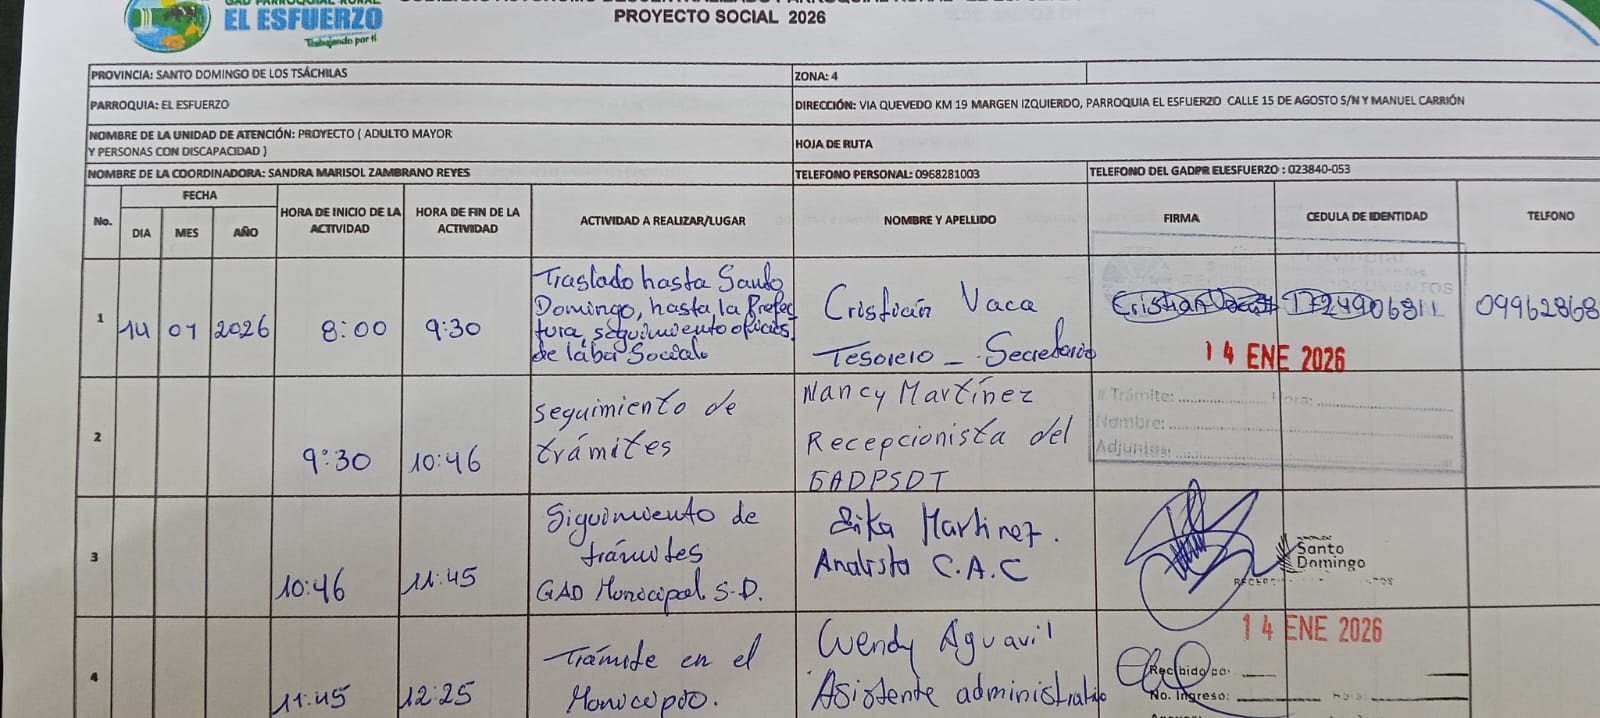 GAD PARROQUIAL RURAL
EL ESFUERZO
Trabajando por ti
PROYECTO SOCIAL 2026
PROVINCIA: SANTO DOMINGO DE LOS TSÁCHILAS
ZONA: 4
PARROQUIA: EL ESFUERZO
DIRECCIÓN: VIA QUEVEDO KM 19 MARGEN IZQUIERDO, PARROQUIA EL ESFUERZO CALLE 15 DE AGOSTO S/N Y MANUEL CARRIÓN
NOMBRE DE LA UNIDAD DE ATENCIÓN: PROYECTO ( ADULTO MAYOR
Y PERSONAS CON DISCAPACIDAD )
HOJA DE RUTA
NOMBRE DE LA COORDINADORA: SANDRA MARISOL ZAMBRANO REYES
TELEFONO PERSONAL: 0968281003
TELEFONO DEL GADPR ELESFUERZO : 023840-053
No.
FECHA
DIA
MES
AÑO
HORA DE INICIO DE LA
ACTIVIDAD
HORA DE FIN DE LA
ACTIVIDAD
ACTIVIDAD A REALIZAR/LUGAR
NOMBRE Y APELLIDO
FIRMA
CEDULA DE IDENTIDAD
TELFONO
1
14
01
2026
8:00
9:30
Traslado hasta Santo
Domingo, hasta la Prefec
tura, seguimiento oficios
de labor Social
Cristian Vaca
Tesorero - Secretario
Cristian Vaca
1724906811
09962868
14 ENE 2026
2
9:30
10:46
seguimiento de
trámites
Nancy Martínez
Recepcionista del
GADPSDT
# Trámite: Hora:
Nombre:
Adjuntos:
3
10:46
11:45
Siguimiento de
trámites
GAD Municipal S-D.
Martinez.
Analista C.A.C
Santo
Domingo
14 ENE 2026
4
11:45
12:25
Trámite en el
Municipio.
Wendy Aguavil
Asistente administrativo
Recibido por:
No. Ingreso: